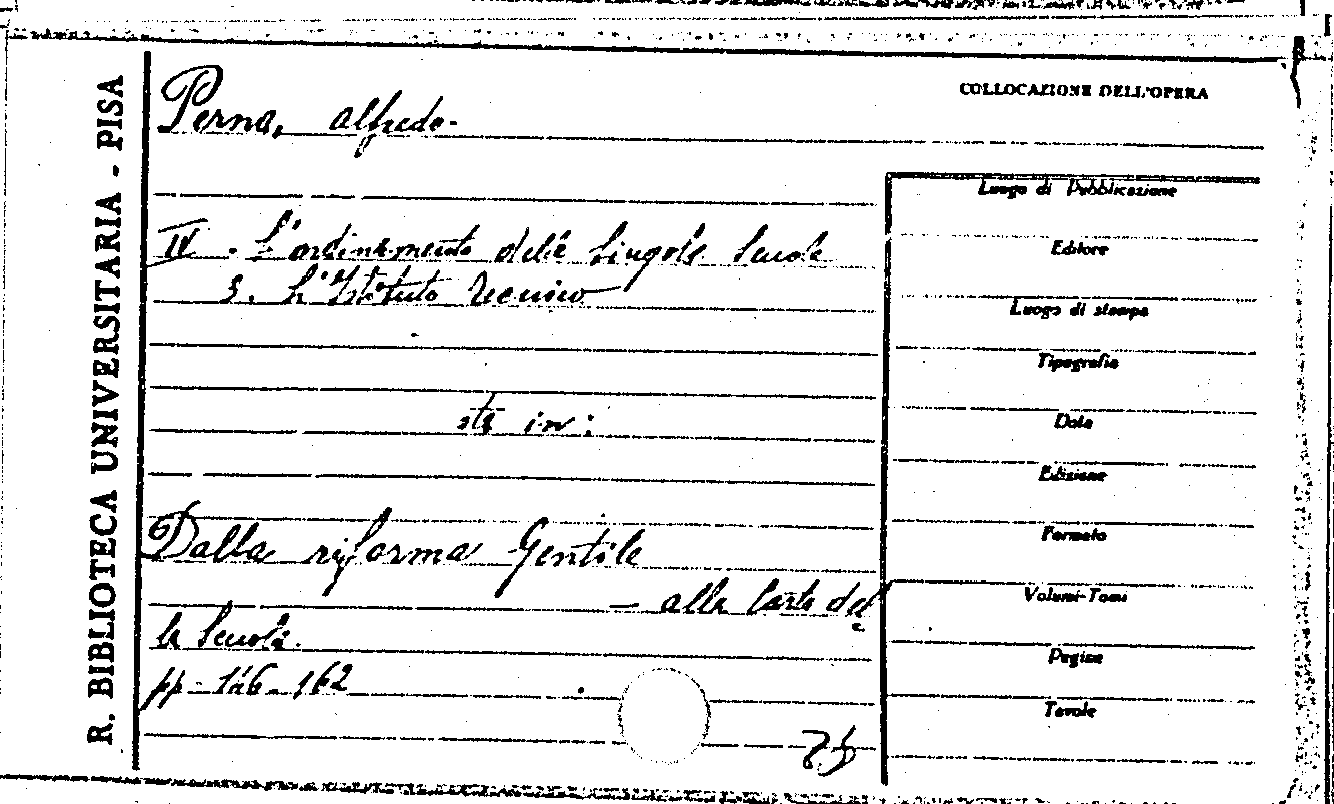 R. BIBLIOTECA UNIVERSITARIA - PISA
COLLOCAZIONE DELL'OPERA
Perna, Alfredo.
IV - L'ordinamento delle Singole Scuole
3. L'Istituto Tecnico
sta in:
Dalla riforma Gentile
- alla Carta del
la Scuola.
pp - 146 - 162
Luogo di Pubblicazione
Editore
Luogo di stampa
Tipografia
Data
Edizione
Formato
Volumi-Tomi
Pagine
Tavole